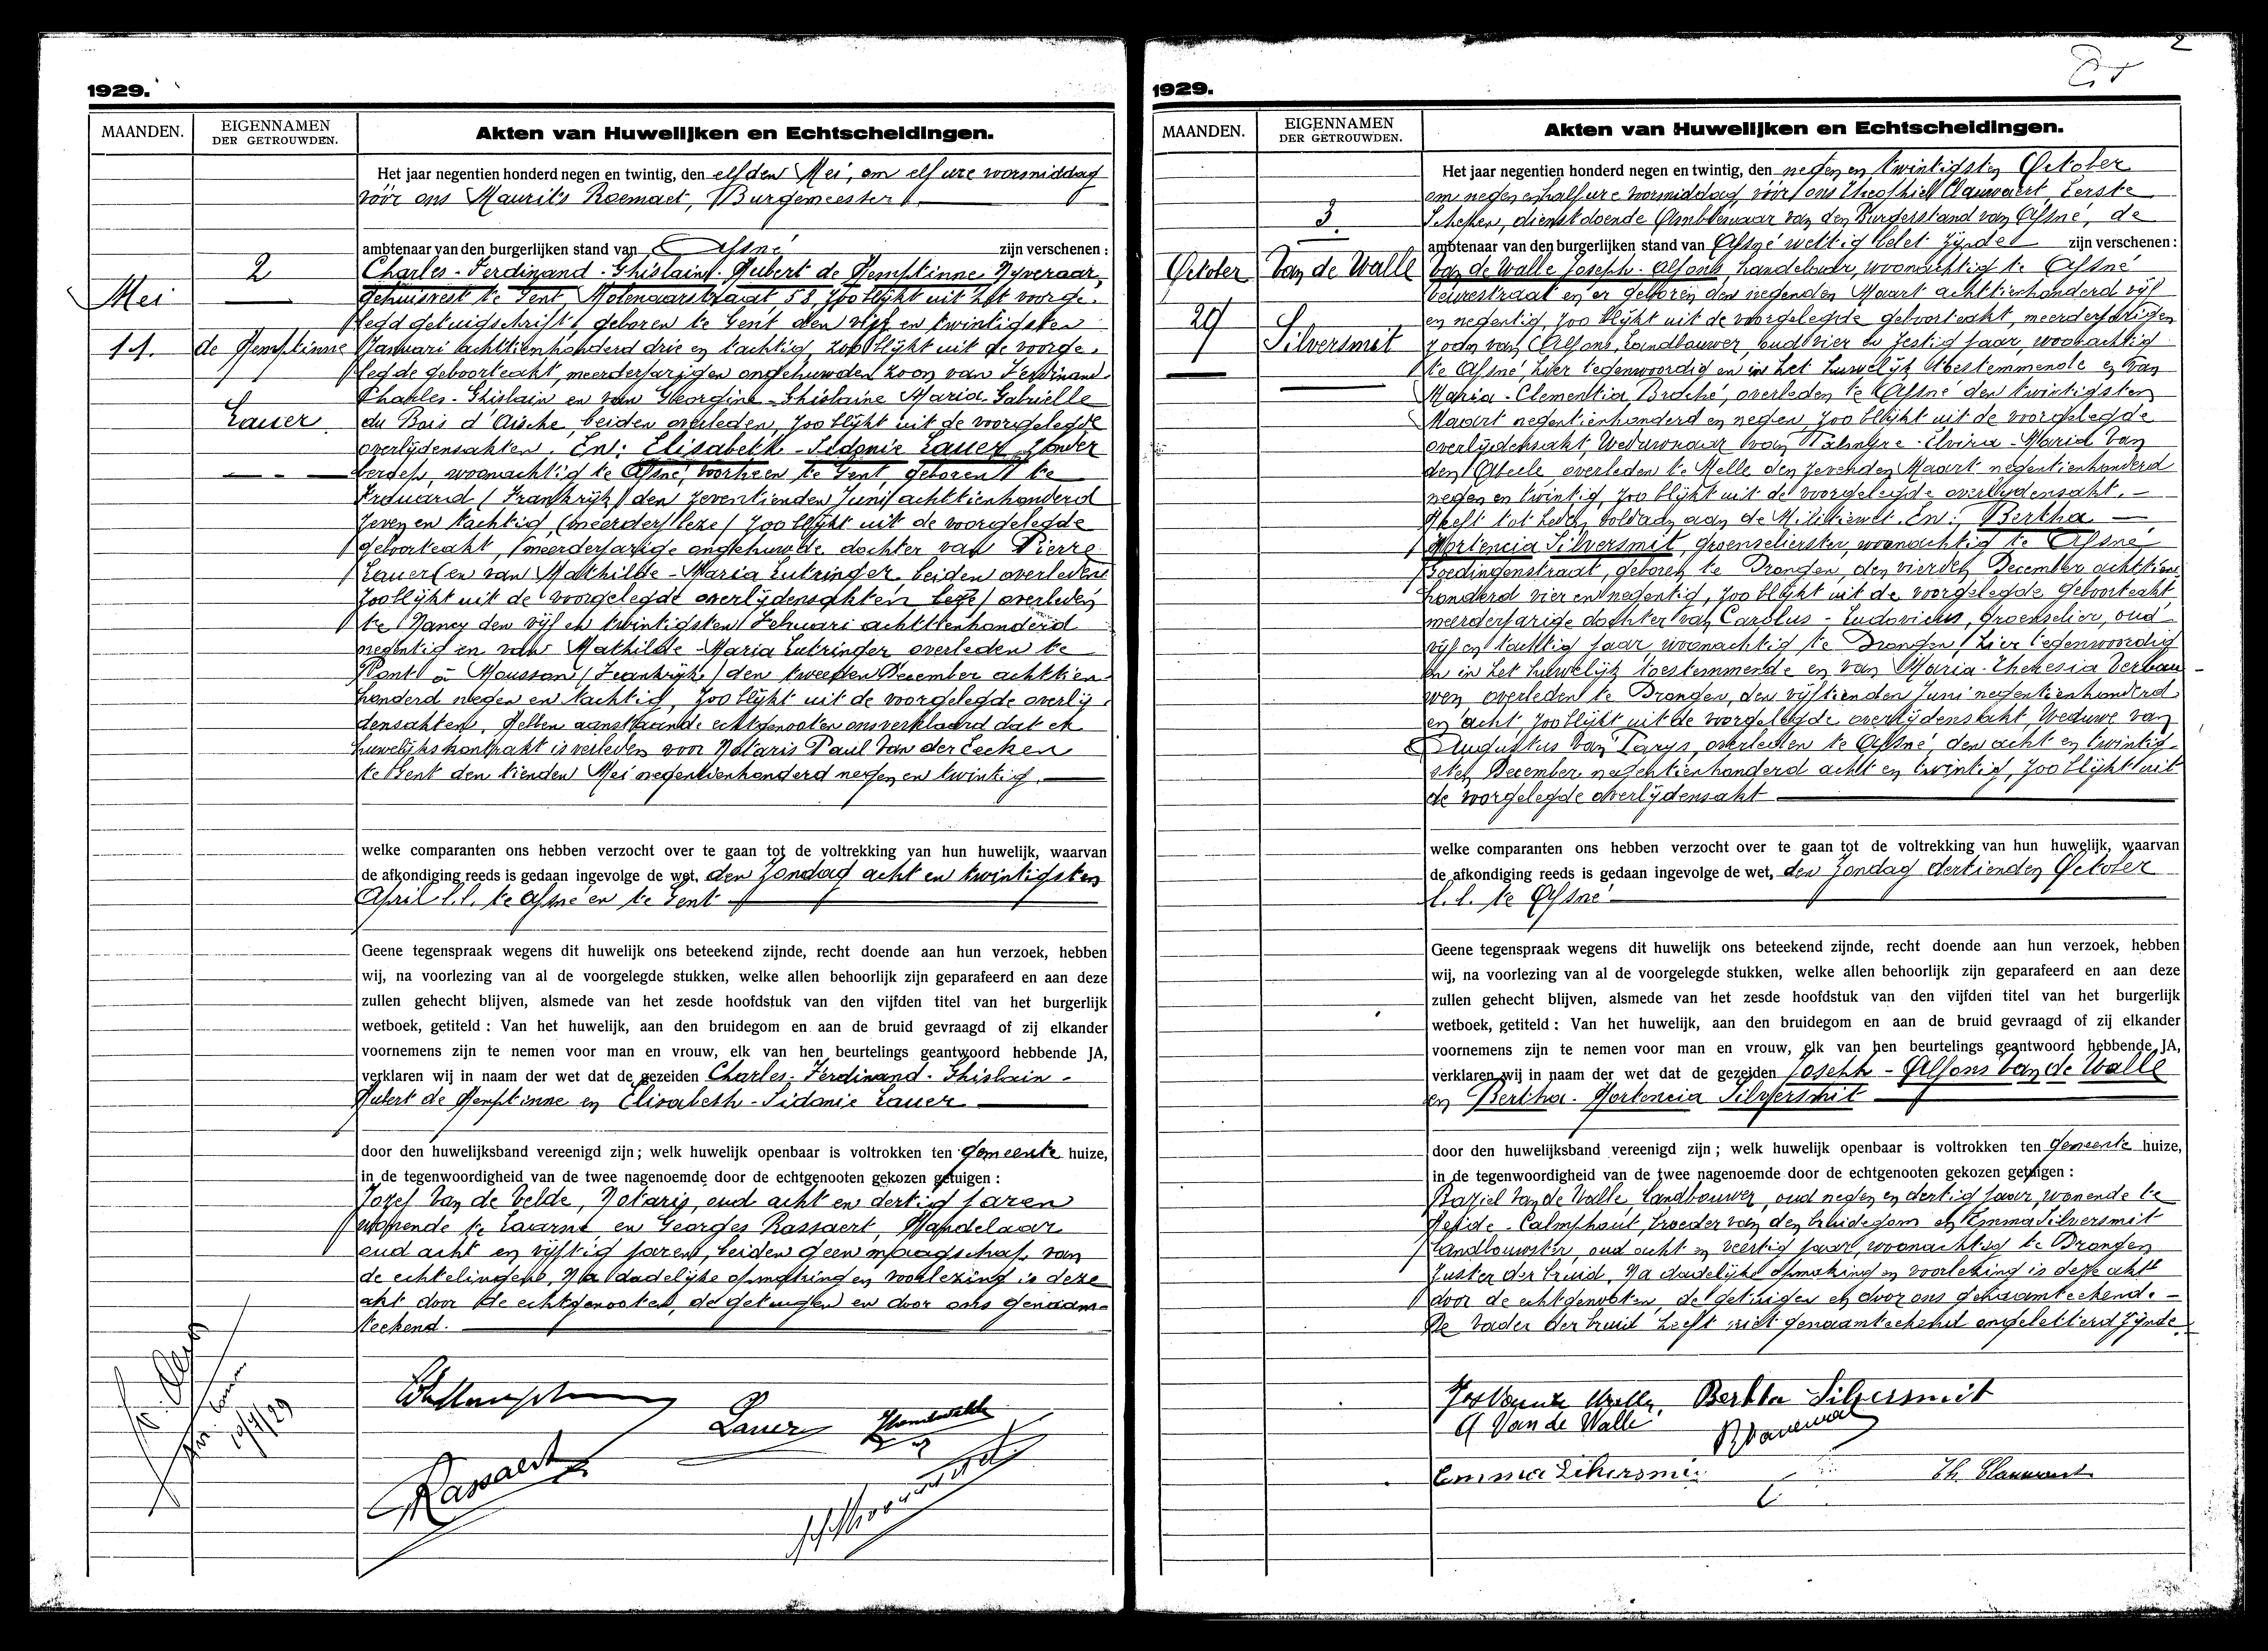 1929.
MAANDEN.
EIGENNAMEN
DER GETROUWDEN.
Akten van Huwelijken en Echtscheidingen.
2
Mei
11.
de Hemptinne
Lauer
Het jaar negentien honderd negen en twintig, den elfden Mei, om elf ure voormiddag
vóór ons Maurits Roemaet, Burgemeester
ambtenaar van den burgerlijken stand van Afsné zijn verschenen :
Charles-Ferdinand-Ghislain-Hubert de Hemptinne, Nyveraar,
gehuisvest te Gent, Molenaarstraat 58, zoo blijkt uit het voorge-
legd getuigschrift, geboren te Gent den vijf en twintigsten
Januari achttienhonderd drie en tachtig, zoo blijkt uit de voorge-
legde geboorteakt, meerderjarigen ongehuwden zoon van Ferdinand
Charles-Ghislain en van Georgine-Ghislaine Maria Gabrielle
du Bois d'Aische, beiden overleden, zoo blijkt uit de voorgelegde
overlijdensakten. En: Elisabeth-Sidonie Lauer, zonder
beroep, woonachtig te Afsné, voorheen te Gent, geboren te
Frouard (Frankrijk) den zeventienden Juni achttienhonderd
zeven en tachtig, (meerder/leze/ zoo blijkt uit de voorgelegde
geboorteakt, meerderjarige ongehuwde dochter van Pierre
Lauer en van Mathilde-Maria Lutringer, beiden overleden
zoo blijkt uit de voorgelegde overlijdensakten leze/ overleden
te Nancy den vijf en twintigsten Februari achttienhonderd
negentig en van Mathilde-Maria Lutringer overleden te
Pont à Mousson (Frankrijk) den tweeden December achttien-
honderd negen en tachtig, zoo blijkt uit de voorgelegde overlij-
densakten. Hebben aanstaande echtgenooten ons verklaard dat ek
huwelijkskontrakt is verleden voor Notaris Paul Van der Eecken
te Gent den tienden Mei negentienhonderd negen en twintig.
welke comparanten ons hebben verzocht over te gaan tot de voltrekking van hun huwelijk, waarvan
de afkondiging reeds is gedaan ingevolge de wet, den Zondag acht en twintigsten
April l.l. te Afsné en te Gent
Geene tegenspraak wegens dit huwelijk ons beteekend zijnde, recht doende aan hun verzoek, hebben
wij, na voorlezing van al de voorgelegde stukken, welke allen behoorlijk zijn geparafeerd en aan deze
zullen gehecht blijven, alsmede van het zesde hoofdstuk van den vijfden titel van het burgerlijk
wetboek, getiteld : Van het huwelijk, aan den bruidegom en aan de bruid gevraagd of zij elkander
voornemens zijn te nemen voor man en vrouw, elk van hen beurtelings geantwoord hebbende JA,
verklaren wij in naam der wet dat de gezeiden Charles-Ferdinand-Ghislain-
Hubert de Hemptinne en Elisabeth-Sidonie Lauer
door den huwelijksband vereenigd zijn ; welk huwelijk openbaar is voltrokken ten gemeente huize,
in de tegenwoordigheid van de twee nagenoemde door de echtgenooten gekozen getuigen :
Jozef Van de Velde, Notaris, oud acht en dertig jaren
wonende te Laarne en Georges Rassaert, Handelaar
oud acht en vijftig jaren, beiden geen maagschap van
de echtelingen. Na dadelijke opmaking en voorlezing is deze
akt door de echtgenooten, de getuigen en door ons genaam-
teekend.
Lauer
Rassaert
10/7/29
2
1929.
MAANDEN.
EIGENNAMEN
DER GETROUWDEN.
Akten van Huwelijken en Echtscheidingen.
3.
October
29
Van de Walle
Silversmit
Het jaar negentien honderd negen en twintig, den negen en twintigsten October
om negen en half ure voormiddag, vóór ons Theophiel Clauwaert, Eerste
Schepen, dienstdoende Ambtenaar van den Burgerstand van Afsné, de
ambtenaar van den burgerlijken stand van Afsné wettig belet zijnde zijn verschenen :
Van de Walle Joseph-Alfons, handelaar, woonachtig te Afsné
Beurestraat en er geboren den negenden Maart achttienhonderd vijf
en negentig, zoo blijkt uit de voorgelegde geboorteakt, meerderjarigen
zoon van Alfons, Landbouwer, oud vier en zestig jaar, woonachtig
te Afsné, hier tegenwoordig en in het huwelijk toestemmende en van
Maria-Clementia Broché, overleden te Afsné den twintigsten
Maart negentienhonderd en negen, zoo blijkt uit de voorgelegde
overlijdensakt, Weduwnaar van Palmyre-Elvira-Maria Van
den Abeele overleden te Melle den zevenden Maart negentienhonderd
negen en twintig, zoo blijkt uit de voorgelegde overlijdensakt.
Heeft tot heden voldaan aan de Militiewet. En: Bertha
Hortencia Silversmit, groenselierster, woonachtig te Afsné
Goedingenstraat, geboren te Drongen, den vierden December achttien
honderd vier en negentig, zoo blijkt uit de voorgelegde geboorteakt
meerderjarige dochter van Carolus-Ludovicus, groenselier, oud
vijf en tachtig jaar woonachtig te Drongen, hier tegenwoordig
en in het huwelijk toestemmende en van Maria-Theresia Verbau
wen overleden te Drongen, den vijftienden Juni negentienhonderd
en acht, zoo blijkt uit de voorgelegde overlijdensakt, Weduwe van
Augustus Van Parys, overleden te Afsné, den acht en twintig-
sten December negentienhonderd acht en twintig, zoo blijkt uit
de voorgelegde overlijdensakt
welke comparanten ons hebben verzocht over te gaan tot de voltrekking van hun huwelijk, waarvan
de afkondiging reeds is gedaan ingevolge de wet, den Zondag dertienden October
l.l. te Afsné
Geene tegenspraak wegens dit huwelijk ons beteekend zijnde, recht doende aan hun verzoek, hebben
wij, na voorlezing van al de voorgelegde stukken, welke allen behoorlijk zijn geparafeerd en aan deze
zullen gehecht blijven, alsmede van het zesde hoofdstuk van den vijfden titel van het burgerlijk
wetboek, getiteld : Van het huwelijk, aan den bruidegom en aan de bruid gevraagd of zij elkander
voornemens zijn te nemen voor man en vrouw, elk van hen beurtelings geantwoord hebbende JA,
verklaren wij in naam der wet dat de gezeiden Joseph-Alfons Van de Walle
en Bertha-Hortencia Silversmit
door den huwelijksband vereenigd zijn ; welk huwelijk openbaar is voltrokken ten gemeente huize,
in de tegenwoordigheid van de twee nagenoemde door de echtgenooten gekozen getuigen :
Baziel Van de Walle, Landbouwer, oud negen en dertig jaar, wonende te
Heide-Calmphout, broeder van den bruidegom en Emma Silversmit
landbouwster, oud acht en veertig jaar, woonachtig te Drongen
zuster der bruid. Na dadelijke opmaking en voorlezing is deze akt
door de echtgenooten, de getuigen en door ons genaamteekend.
De vader der bruid heeft niet genaamteekend ongeletterd zijnde.
Bertha Silversmit
A Van de Walle
Emma Silversmit
Th. Clauwaert